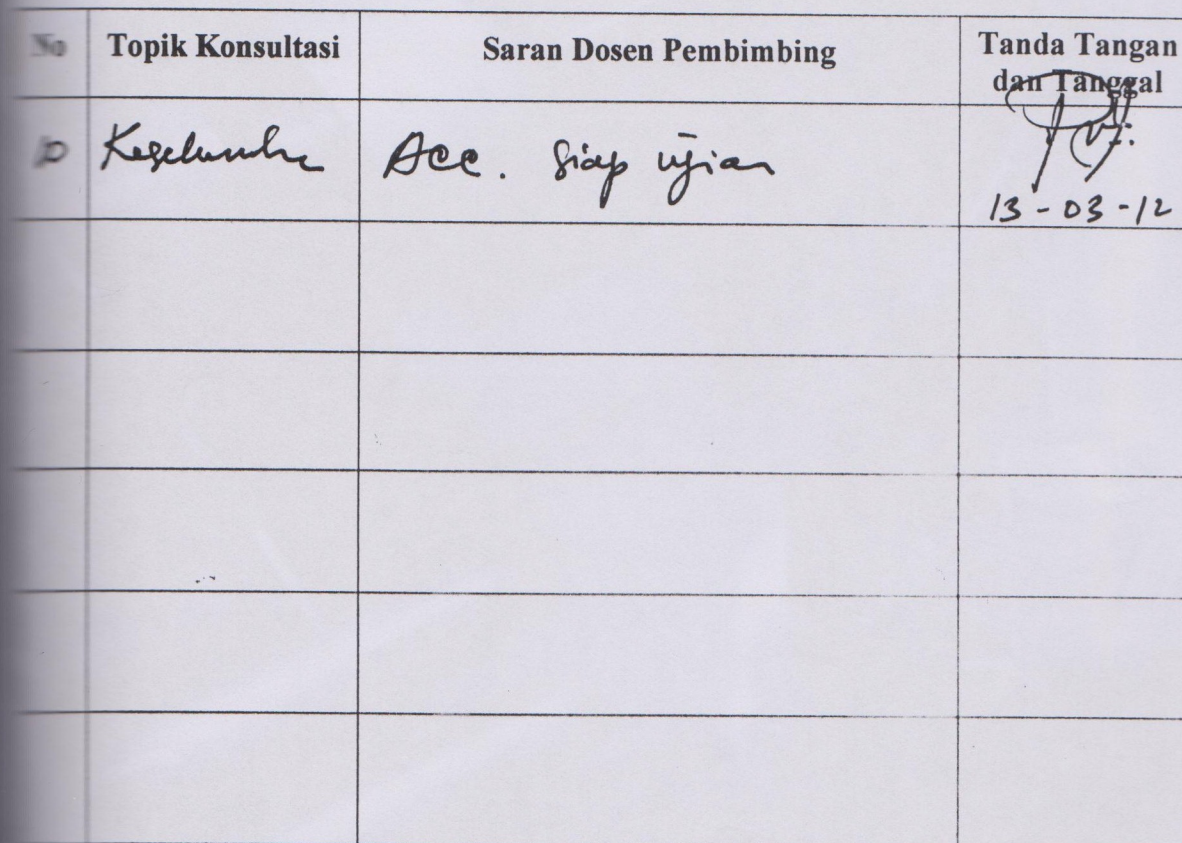 No Topik Konsultasi Saran Dosen Pembimbing Tanda Tangan
dan Tanggal
Acc. Siap ujian
13-03-12